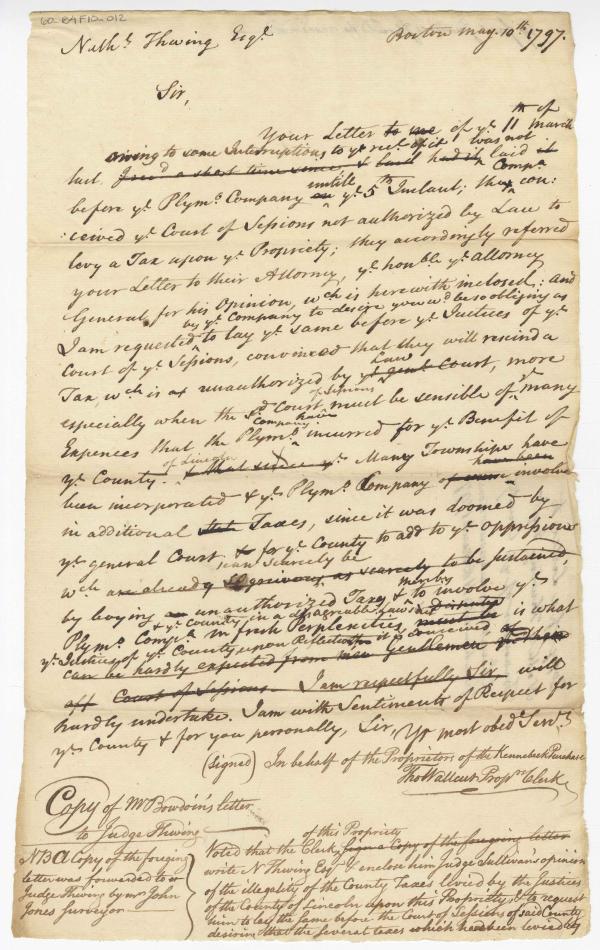 60-B4F10-012
Nathl. Thwing Esqr.
Boston May 10th. 1797.
Sir,
Your Letter to me of ye. 11th of March
owing to some Interruptions to ye. rect. of it was not
last. I recd. a short time since & laid had it laid it
before ye. Plymo. Company on untill ye. 5th Instant; the Compy. con:
:ceived ye. Court of Sessions not authorized by Law to
levy a Tax upon ye. Propriety; they accordingly referred
your Letter to their Attorney, ye. honble. ye. attorney
General, for his Opinion, wch. is herewith inclosed: and
by ye. Company to desire you wd. be so obliging as
I am requested to lay ye. same before ye. Justices of ye.
Court of ye. Sessions, convinced that they will rescind a
Tax, wch. is as unauthorized by Law ye. Court, more
especially when the sd. Court of Sessions must be sensible of ye. many
Expences that the Plymo. Company have incurred for ye. Benefit of
ye. County of Lincoln & that since ye. Many Townships have
been incorporated & ye. Plymo. Company involve
in additional Taxes, since it was doomed by
ye. general Court, & for ye. County to add to ye. oppression
can scarcely be
wch. are already so grievous, as scarcely to be sustained,
by levying an unauthorized Tax, & thereby to involve ye.
& ye. County, in a disagreable law suit disputes
Plymo. Compy. in fresh Perplexities, must is what
ye. Justices of ye. County upon Reflection it is conceived
can be hardly expected from Gentlemen
Court of Sessions. I am respectfully Sir, will
hardly undertake. I am with Sentiments of Respect for
ye. County & for you personally, Sir, Yr. most obedt. Servt.
(signed) In behalf of the Proprietors of the Kennebeck Purchase
Tho. Wallcut Proprs. Clerk
Copy of Mr Bowdoin's letter
to Judge Thwing
NB a Copy of the foreing
letter was forwarded to sd
Judge Thwing by mr John
Jones surveyor.
of this Propriety
Voted that the Clerk sign a Copy of the foregoing letter
write N Thwing Esqr. & enclose him Judge Sullivan's opinion
of the illegality of the County Taxes levied by the Justices
of the County of Lincoln upon this Propriety, & to request
him to lay the same before the Court of Sessions of said County
desiring that the several taxes which had been levied by